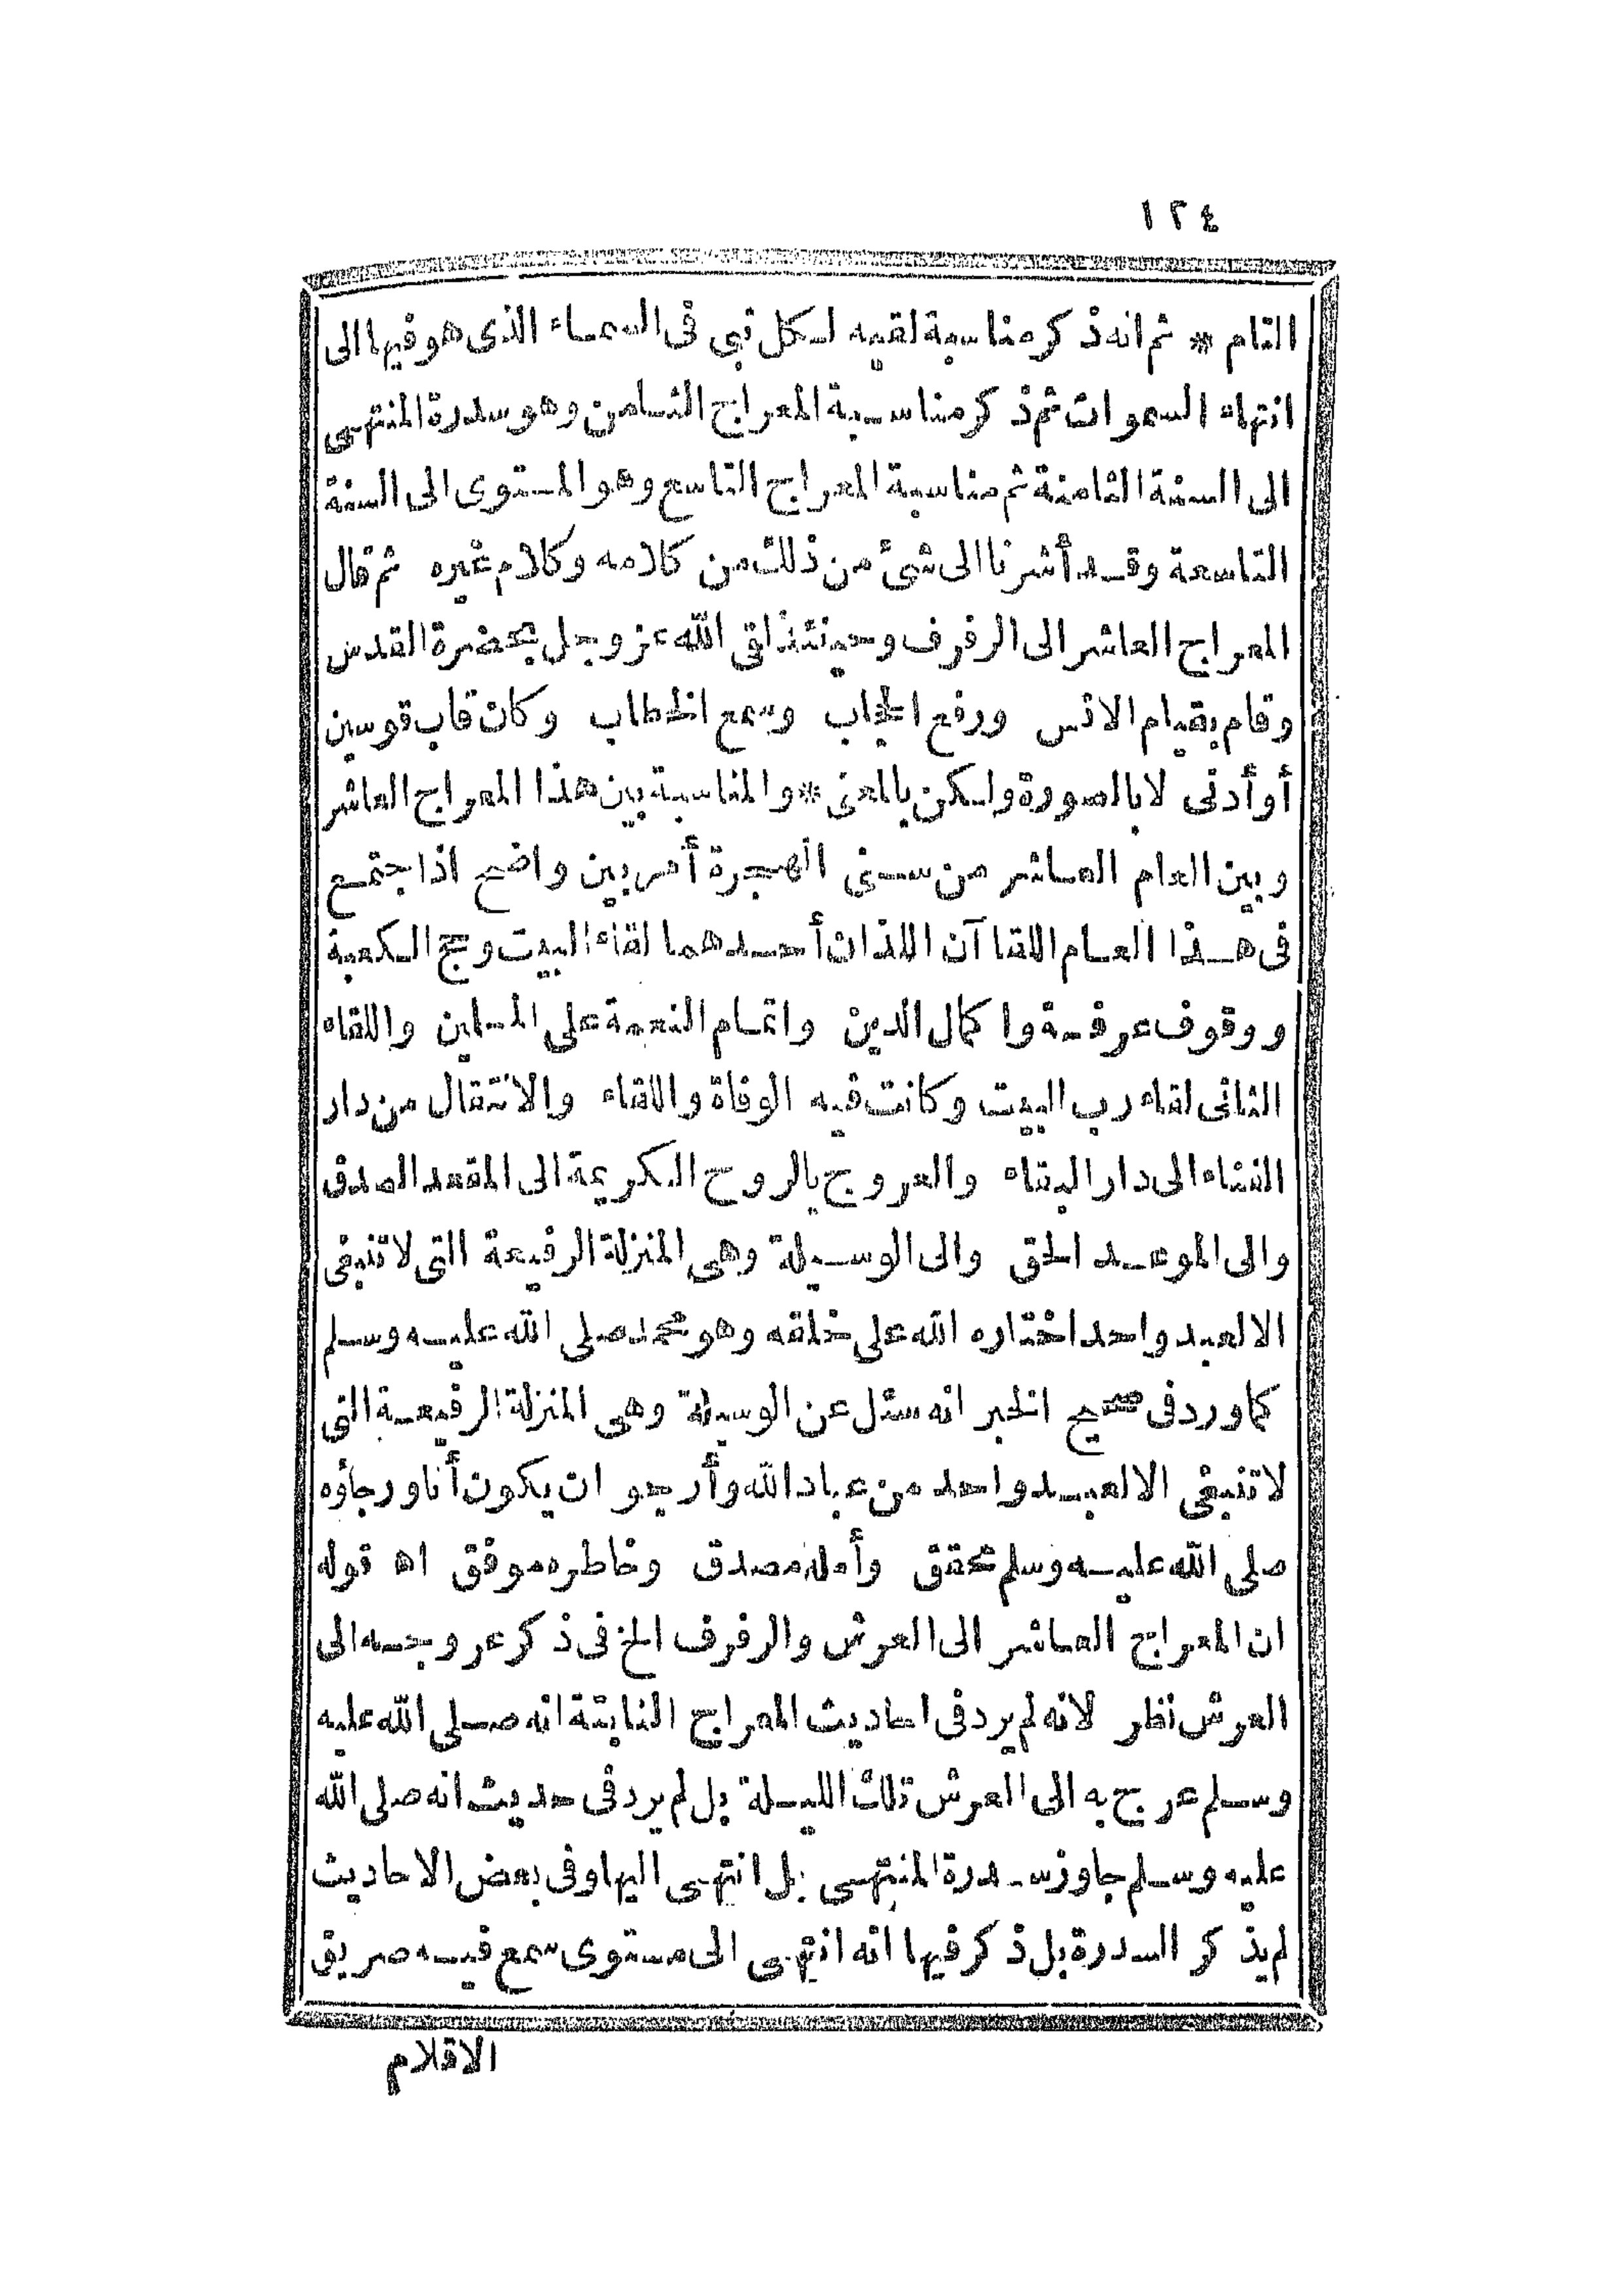 ١٢٤
التام * ثم انه ذكر مناسبة لقيه لكل نبي فى السماء الذى هو فيها الى
انتهاء السموات ثم ذكر مناسبة المعراج الثامن وهو سدرة المنتهى
الى السنة الثامنة ثم مناسبة المعراج التاسع وهو المستوى الى السنة
التاسعة وقد أشرنا الى شئ من ذلك من كلامه وكلام غيره ثم قال
المعراج العاشر الى الرفرف وحينئذ لقى الله عز وجل بحضرة القدس
وقام بقيام الانس ورفع الحجاب وسمع الخطاب وكان قاب قوسين
أو أدنى لا بالصورة ولكن بالمعنى * والمناسبة بين هذا المعراج العاشر
وبين العام العاشر من سنى الهجرة أمر بين واضح اذا جتمع
فى هذا العام اللقاآن اللذان أحدهما لقاء البيت وحج الكعبة
ووقوف عرفة واكمال الدين واتمام النعمة على المسلمين واللقاء
الثانى لقاء رب البيت وكانت فيه الوفاة واللقاء والانتقال من دار
الفناء الى دار البقاء والعروج بالروح الكريمة الى المقعد الصدق
والى الموعد الحق والى الوسيلة وهى المنزلة الرفيعة التى لا تنبغى
الا لعبد واحد اختاره الله على خلقه وهو محمد صلى الله عليه وسلم
كما ورد فى صحيح الخبر انه سئل عن الوسيلة وهى المنزلة الرفيعة التى
لا تنبغى الا لعبد واحد من عباد الله وأرجو ان يكون أنا ورجاؤه
صلى الله عليه وسلم محقق وأمله مصدق وخاطره موفق اه قوله
ان المعراج العاشر الى العرش والرفرف الخ فى ذكر عروجه الى
العرش نظر لانه لم يرد فى احاديث المعراج الثابتة انه صلى الله عليه
وسلم عرج به الى العرش تلك الليلة بل لم يرد فى حديث انه صلى الله
عليه وسلم جاوز سدرة المنتهى بل انتهى اليها وفى بعض الاحاديث
لم يذكر السدرة بل ذكر فيها انه انتهى الى مستوى سمع فيه صريف
الاقلام